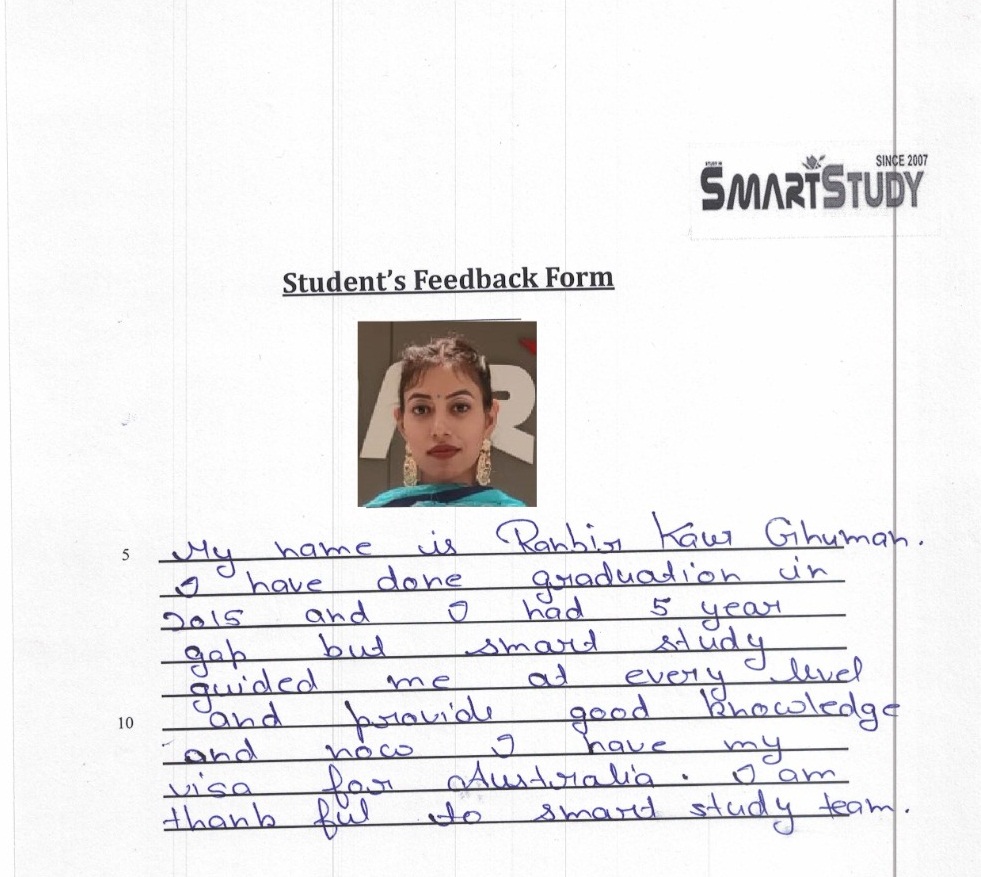 SINCE 2007
STUDY IN
SMARTSTUDY
Student's Feedback Form
AR
5 My name is Ranbir Kaur Ghuman.
I have done graduation in
2015 and I had 5 year
gap but smart study
guided me at every level
10 and provide good knowledge
and now I have my
visa for Australia. I am
thank ful to smart study team.